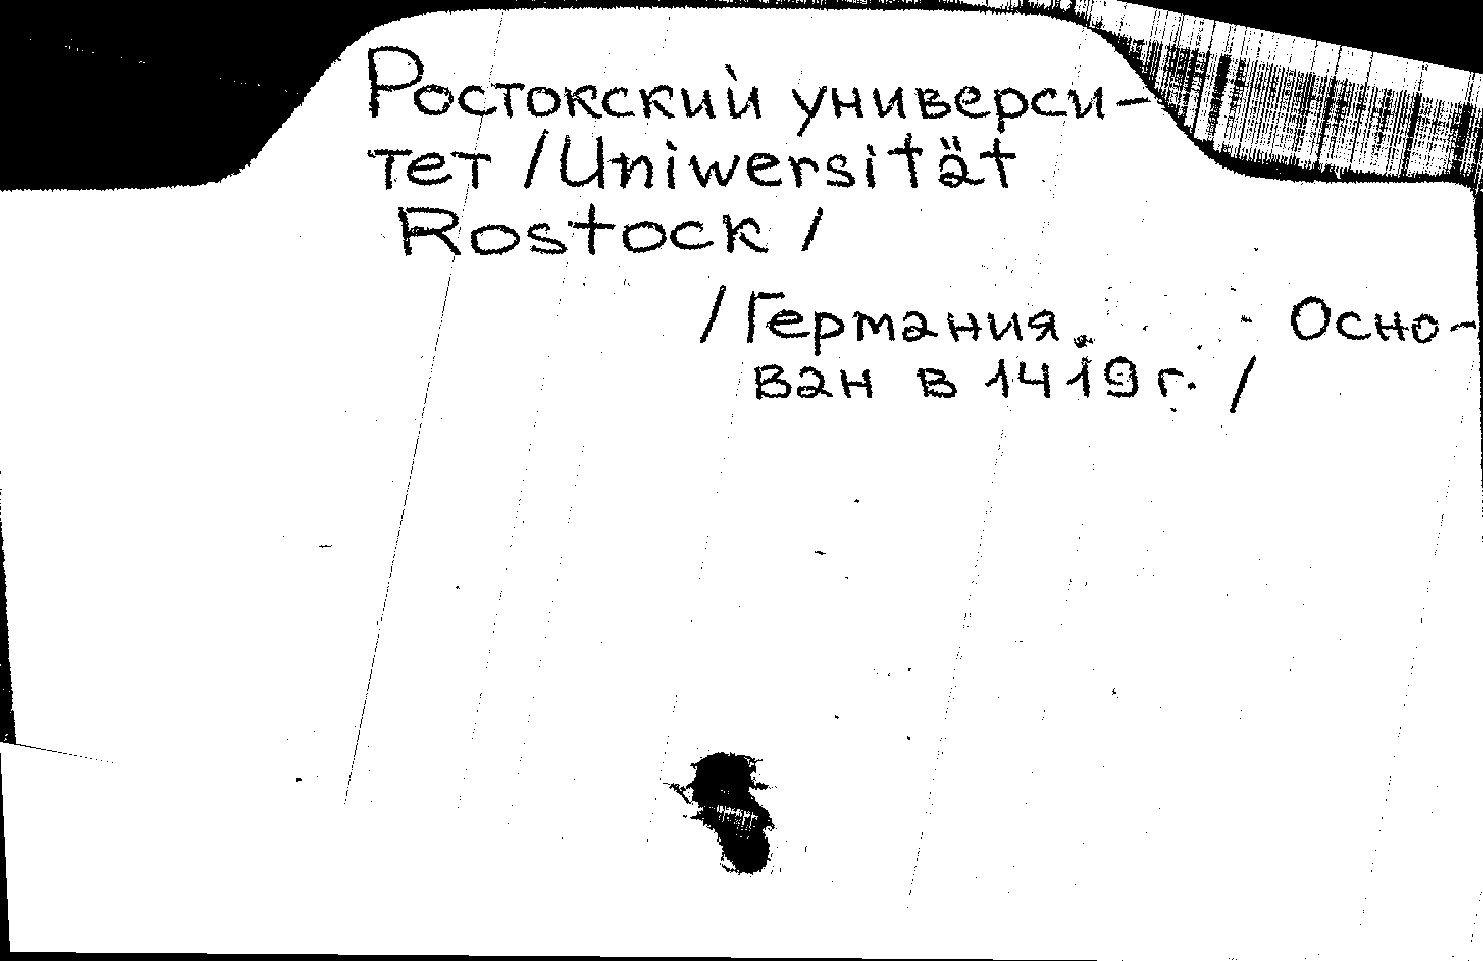 Ростокский универси-
тет /Uniwersität
Rostock /
/Германия. - Осно-
ван в 1419 г. /